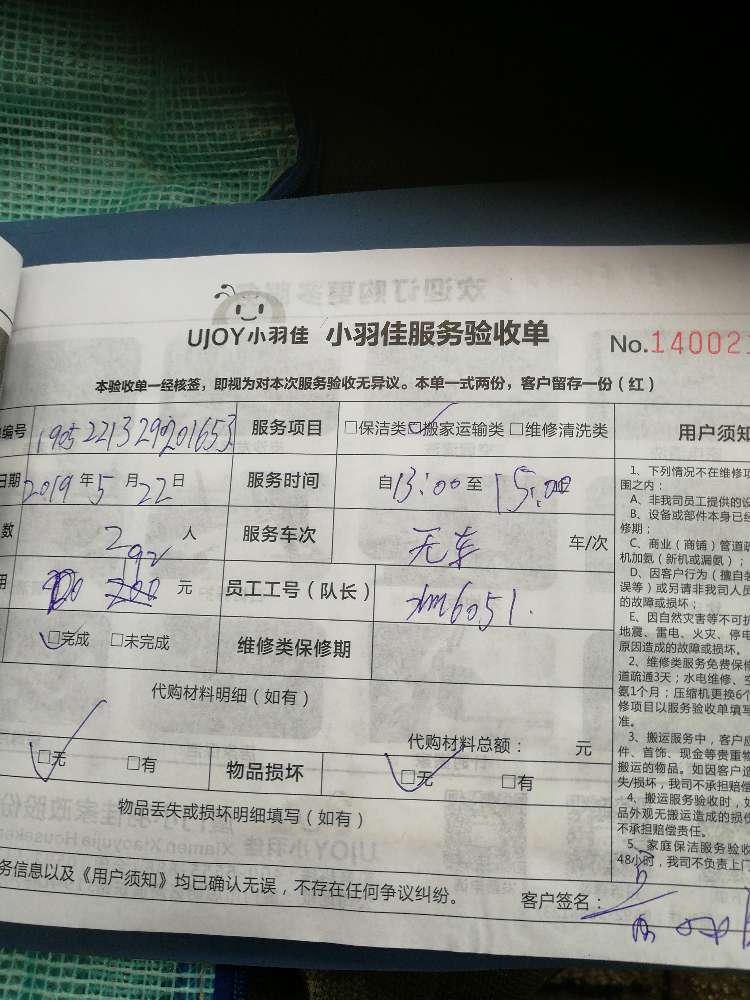 UJOY小羽佳 小羽佳服务验收单
No.14002
本验收单一经核签，即视为对本次服务验收无异议。本单一式两份，客户留存一份（红）
编号 1905221329201653 服务项目 □保洁类□搬家运输类□维修清洗类 用户须知
日期 2019年5月22日 服务时间 自13:00至15:00
数 2 人 服务车次 无车 车/次
用 200 元 员工工号（队长） xm6051
□完成 □未完成 维修类保修期
代购材料明细（如有）
代购材料总额： 元
□无 □有 物品损坏 □无 □有
物品丢失或损坏明细填写（如有）
务信息以及《用户须知》均已确认无误，不存在任何争议纠纷。 客户签名：
1、下列情况不在维修
围之内：
A、非我司员工提供的设
B、设备或部件本身已经
修期；
C、商业（商铺）管道疏
机加氨（新机或漏氨）；
D、因客户行为（擅自
误等）或另请非我司人员
的故障或损坏；
E、因自然灾害等不可抗
地震、雷电、火灾、停电
原因造成的故障或损坏。
2、维修类服务免费保修
道疏通3天；水电维修、空
氨1个月；压缩机更换6个
修项目以服务验收单填写
准。
3、搬运服务中，客户应
件、首饰、现金等贵重物
搬运的物品。如因客户
失/损坏，我司不承担赔偿
4、搬运服务验收时，如
品外观无搬运造成的损伤
不承担赔偿责任。
5、家庭保洁服务验收
48小时，我司不负责上门